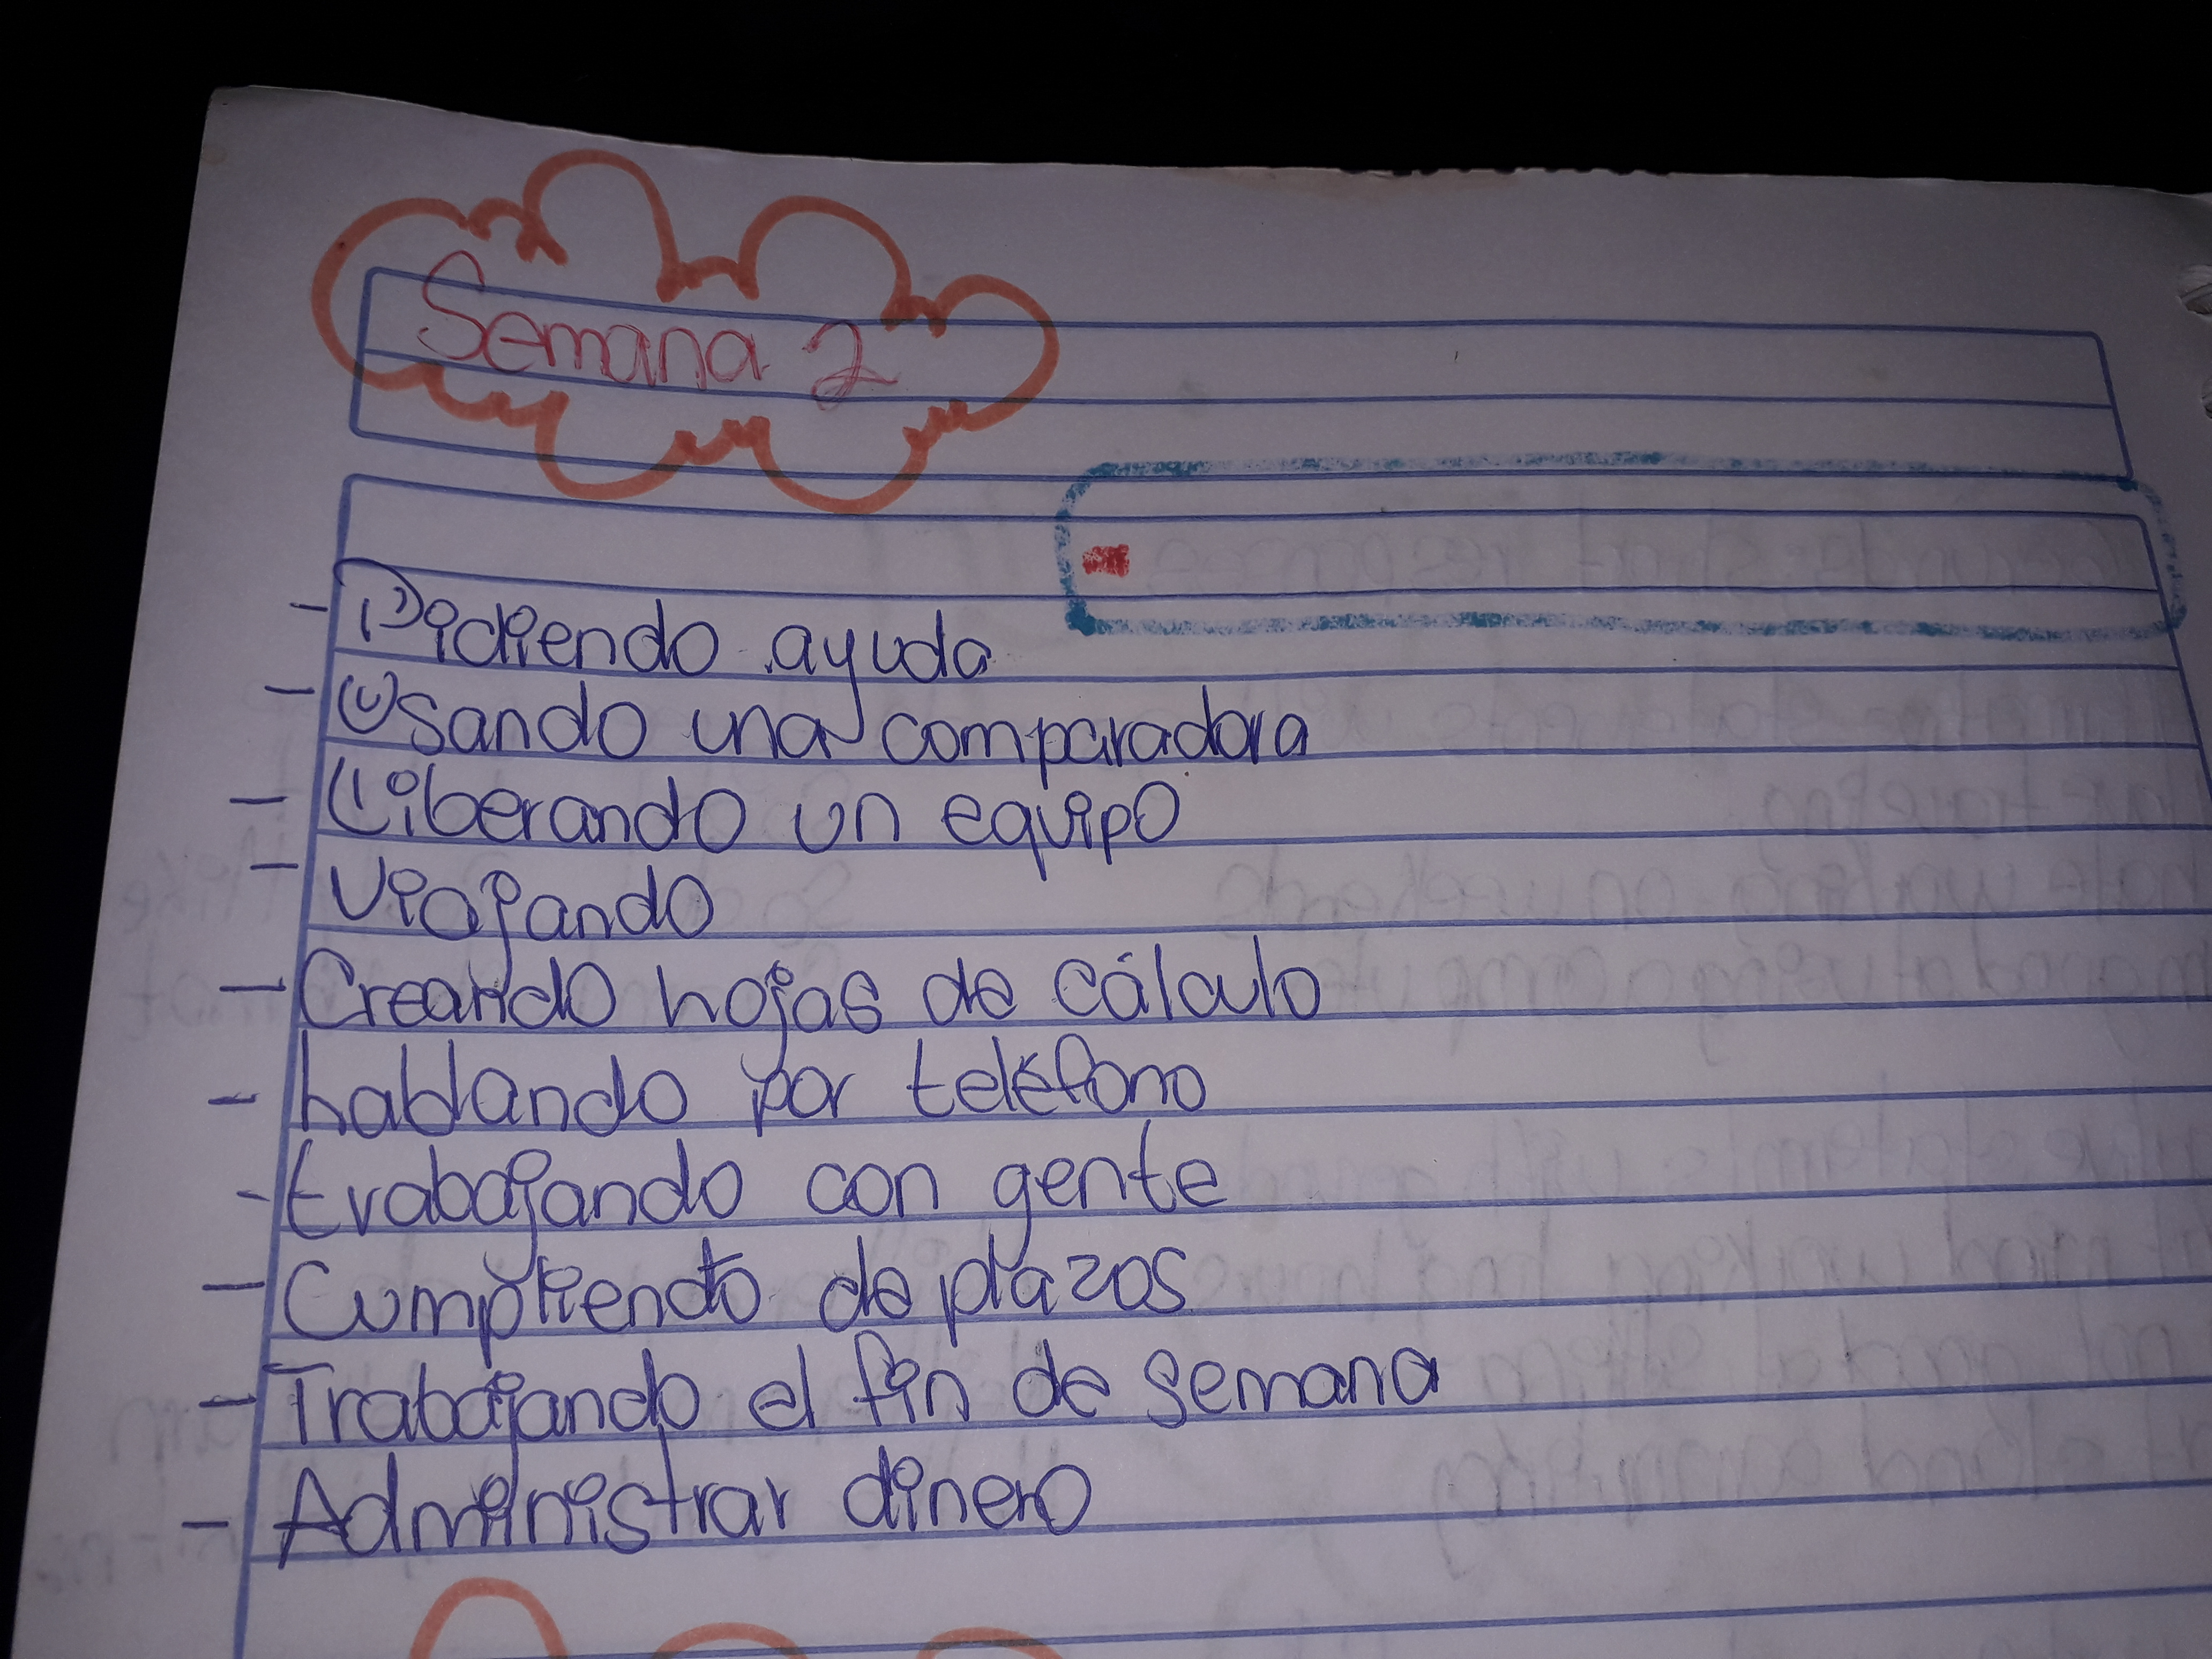 Semana 2
- Pidiendo ayuda
- Usando una comparadora
- Liberando un equipo
- Viajando
- Creando hojas de cálculo
- hablando por teléfono
- trabajando con gente
- Cumpliendo de plazos
- Trabajando el fin de semana
- Administrar dinero